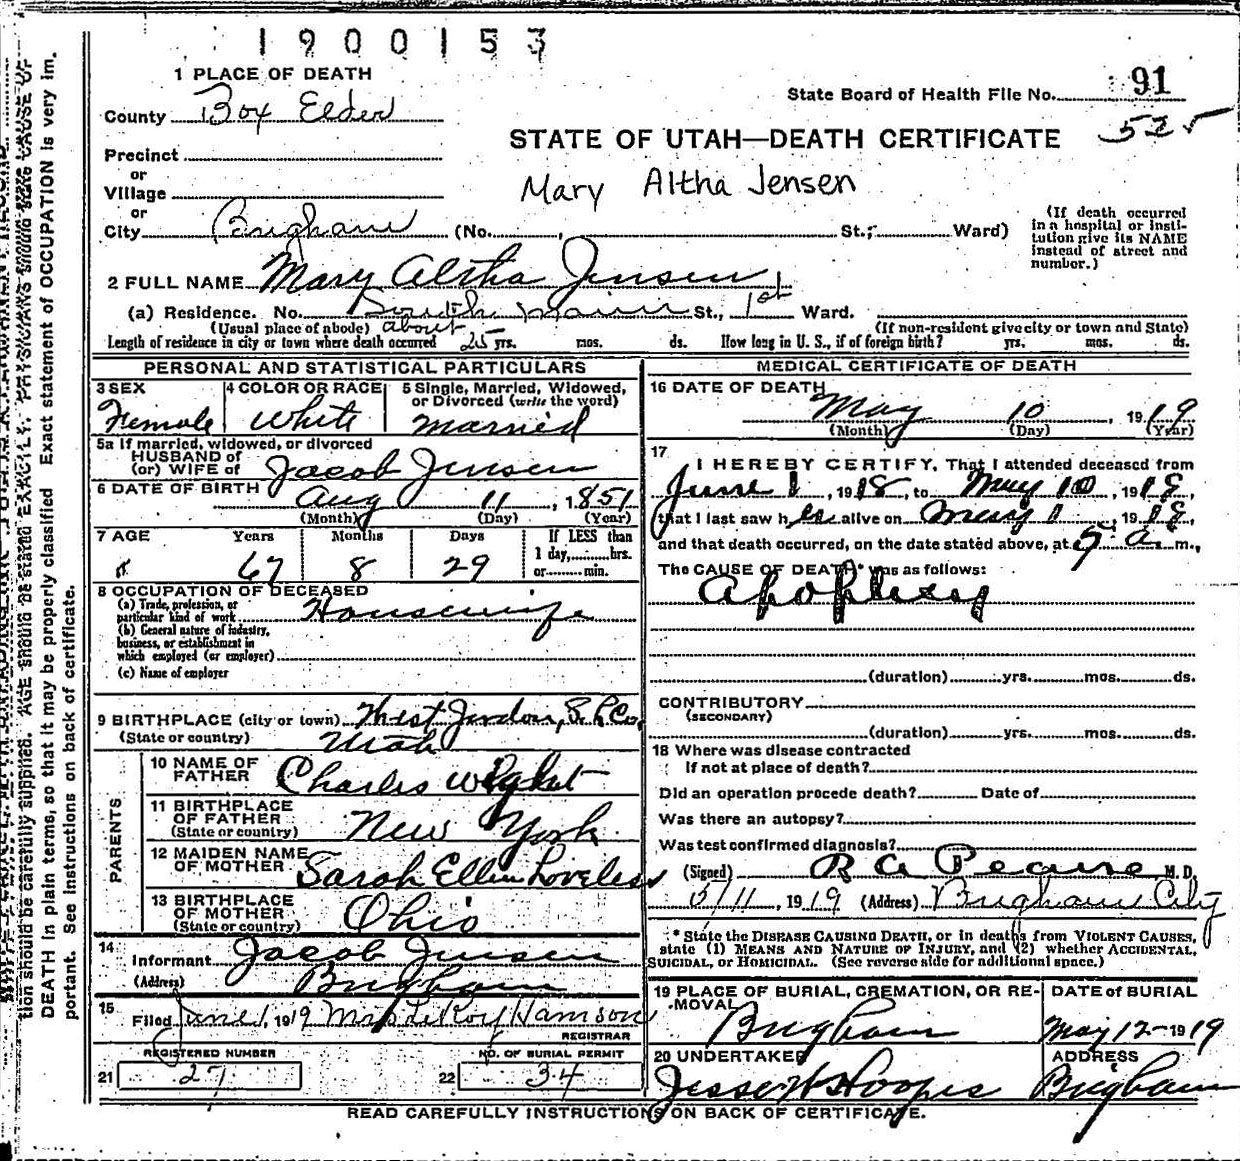 1900153
1 PLACE OF DEATH
91
State Board of Health File No.
County Box Elder
525
STATE OF UTAH—DEATH CERTIFICATE
Precinct
or
Village
Mary Altha Jensen
or
City Brigham (No. , St.; Ward)
(If death occurred in a hospital or institution give its NAME instead of street and number.)
2 FULL NAME Mary Altha Jensen
(a) Residence. No. South Main St., 1st Ward.
(Usual place of abode) (If non-resident give city or town and State)
Length of residence in city or town where death occurred about 25 yrs. mos. ds. How long in U. S., if of foreign birth? yrs. mos. ds.
PERSONAL AND STATISTICAL PARTICULARS
3 SEX Female
4 COLOR OR RACE White
5 Single, Married, Widowed, or Divorced (write the word) Married
5a If married, widowed, or divorced
HUSBAND of
(or) WIFE of Jacob Jensen
6 DATE OF BIRTH Aug 11, 1851
(Month) (Day) (Year)
7 AGE Years Months Days If LESS than
1 day,......hrs.
or......min.
67 8 29
8 OCCUPATION OF DECEASED
(a) Trade, profession, or
particular kind of work Housewife
(b) General nature of industry,
business, or establishment in
which employed (or employer)
(c) Name of employer
9 BIRTHPLACE (city or town) West Jordan, S L Co.
(State or country) Utah
PARENTS
10 NAME OF FATHER Charles Wight
11 BIRTHPLACE OF FATHER New York
(State or country)
12 MAIDEN NAME OF MOTHER Sarah Ellen Loveless
13 BIRTHPLACE OF MOTHER Ohio
(State or country)
14
Informant Jacob Jensen
(Address) Brigham
15
Filed June 1, 1919 Mrs LeRoy Hamson
REGISTRAR
REGISTERED NUMBER
21 27
NO. OF BURIAL PERMIT
22 34
MEDICAL CERTIFICATE OF DEATH
16 DATE OF DEATH
May 10, 1919
(Month) (Day) (Year)
17
I HEREBY CERTIFY, That I attended deceased from
June 1, 1918, to May 10, 1919,
that I last saw her alive on May 1, 1919,
and that death occurred, on the date stated above, at 5 a. m.,
The CAUSE OF DEATH* was as follows:
Apoplexy
(duration) yrs. mos. ds.
CONTRIBUTORY
(SECONDARY)
(duration) yrs. mos. ds.
18 Where was disease contracted
If not at place of death?
Did an operation procede death? Date of
Was there an autopsy?
Was test confirmed diagnosis?
(Signed) R A Pearse M.D.
5/11, 1919 (Address) Brigham City
* State the DISEASE CAUSING DEATH, or in deaths from VIOLENT CAUSES,
state (1) MEANS AND NATURE OF INJURY, and (2) whether ACCIDENTAL,
SUICIDAL, or HOMICIDAL. (See reverse side for additional space.)
19 PLACE OF BURIAL, CREMATION, OR REMOVAL Brigham
DATE of BURIAL May 12 1919
20 UNDERTAKER
ADDRESS
Brigham
READ CAREFULLY INSTRUCTIONS ON BACK OF CERTIFICATE.
tion should be carefully supplied. AGE should be stated EXACTLY. PHYSICIANS should state CAUSE OF
DEATH in plain terms, so that it may be properly classified. Exact statement of OCCUPATION is very im-
portant. See instructions on back of certificate.